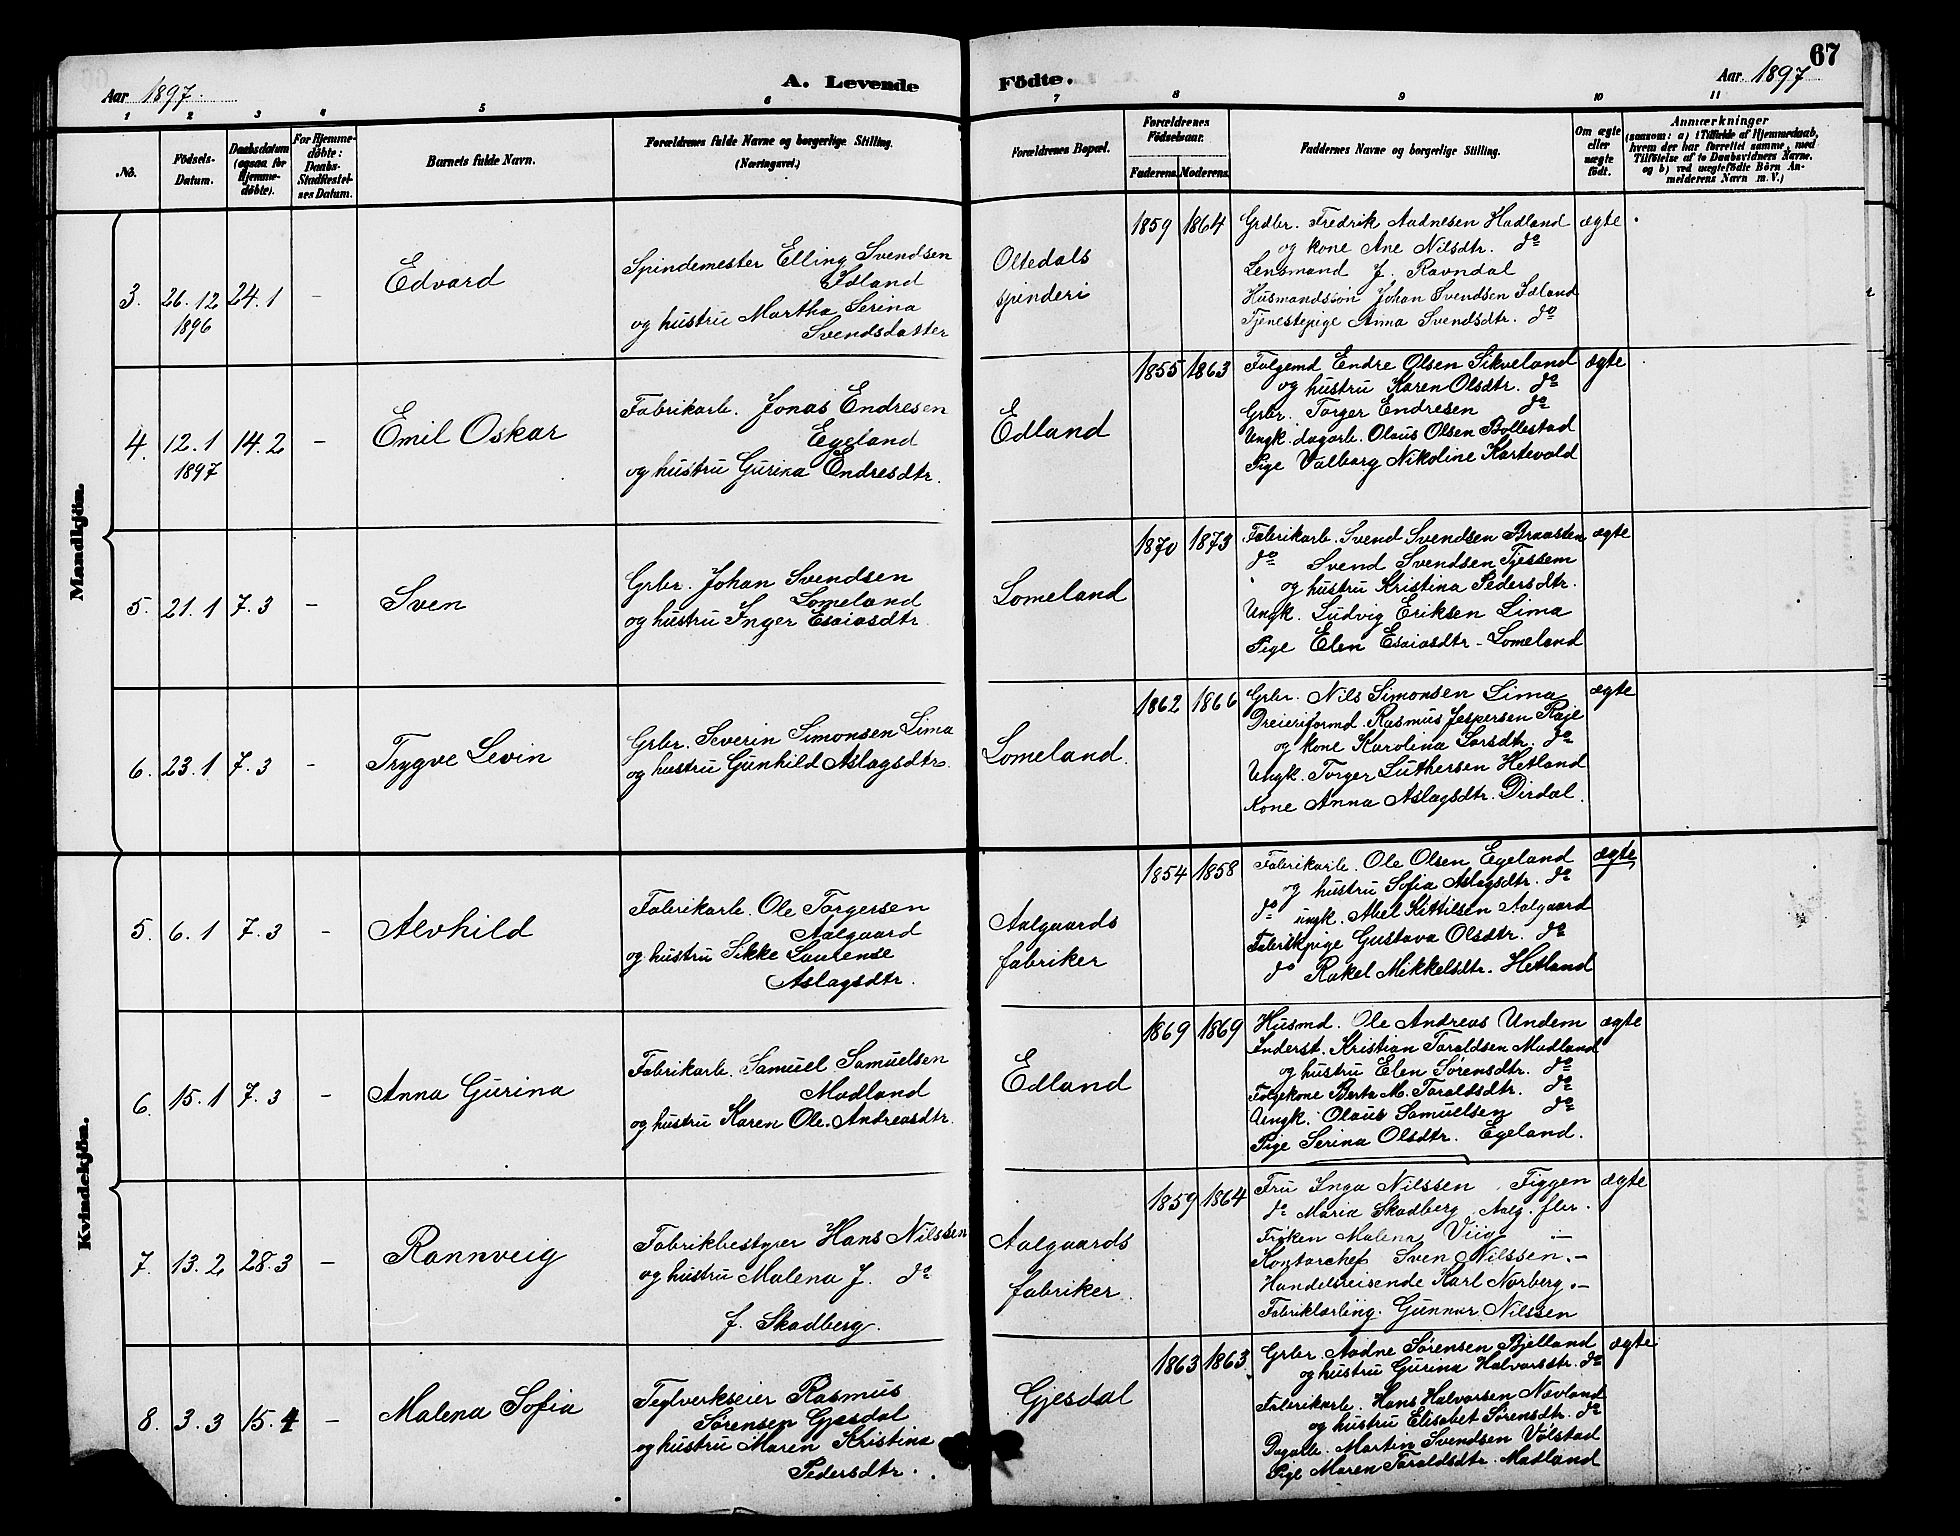 67
Aar 1897.
A. Levende
Födte.
Aar 1897
1 2 3 4 5 6 7 8 9 10 11
No.
Födsels-
Datum.
Daabsdatum
(ogsaa for
Hjemme-
döbte).
For Hjemme-
döbte:
Daabs
Stadfestel-
ses Datum.
Barnets fulde Navn.
Forældrenes fulde Navne og borgerlige Stilling.
(Næringsvei.)
Forældrenes Bopæl.
Forældrenes
Födselsaar.
Faderens. Moderens.
Faddernes Navne og borgerlige Stilling.
Om ægte
eller
uægte
födt.
Anmærkninger
(saasom: a) i Tilfælde af Hjemmedaab,
hvem der har forrettet samme, med
Tilföielse af to Daabsvidners Navne.
og b) ved uægtefödte Börn An-
melderens Navn m. V.)
Mandkjön.
3. 26.12 1896 24.1 –
Edvard
Spindemester Elling Svendsen
Edland
og hustru Martha Serina
Svendsdatter
Oltedals
spinderi
1859 1864
Grdbr. Fredrik Aadnesen Hadland
og kone Ane Nilsdtr. do
Lensmand J. Ravndal
Husmandssön Johan Svendsen Edland
Tjenestepige Anna Svendsdtr. do
ægte
4. 12.1 1897 14.2 –
Emil Oskar
Fabrikarb. Jonas Endresen
Egeland
og hustru Gurina Endresdtr.
Edland
1855 1863
Folgemd Endre Olsen Sikveland
og hustru Karen Olsdtr. do
Grbr. Torger Endresen do
Ungk. dagarb. Olaus Olsen Bollestad
Pige Valborg Nikoline Kartevold
ægte
5. 21.1 7.3 –
Sven
Grbr. Johan Svendsen
Lomeland
og hustru Inger Esaiasdtr.
Lomeland
1870 1873
Fabrikarb. Svend Svendsen Braasten
do Svend Svendsen Tjessem
og hustru Kristina Pedersdtr.
Ungk. Ludvig Eriksen Lima
Pige Elen Esaiasdtr - Lomeland
ægte
6. 23.1 7.3 –
Trygve Levin
Grbr. Severin Simonsen Lima
og hustru Gunhild Aslagsdtr.
Lomeland.
1862 1866
Grbr. Nils Simonsen Lima
Dreieriformd. Rasmus Jespersen Raje
og kone Karolina Larsdtr. do
Ungk. Torger Luthersen Hetland
Kone Anna Aslagsdtr. Dirdal.
ægte
Kvindekjön.
5. 6.1 7.3 –
Alvhild
Fabrikarb. Ole Torgersen
Aalgaard
og hustru Sikke Laulense
Aslagsdtr.
Aalgaards
fabriker
1854 1858
Fabrikarb. Ole Olsen Egeland
og hustru Sofia Aslagsdtr. do
do ungk. Abel Kittilsen Aalgaard
Fabrikpige Gustava Olsdtr. do
do Rakel Mikkelsdtr. Hetland
ægte
6. 15.1 7.3 –
Anna Gurina
Fabrikarb. Samuel Samuelsen
Madland
og hustru Karen Ole-Andreasdtr.
Edland
1869 1869
Husmd. Ole Andreas Undem
Inderst. Kristian Taraldsen Madland
og hustru Elen Sørensdtr. do
Folgekone Berta M. Taraldsdtr. do
Ungk. Olaus Samuelsen do
Pige Serina Olsdtr. Egeland.
ægte
7. 13.2 28.3 –
Rannveig
Fabrikbestyrer Hans Nilssen
og hustru Malena J. do
f. Skadberg.
Aalgaards
fabriker.
1859 1864
Fru Inga Nilssen Figgen
do Maria Skadberg Aalg. fbr.
Frøken Malena Viig –
Kontorchef Sven Nilssen. –
Handelsreisende Karl Norberg. –
Fabriklærling. Gunnar Nilssen
ægte
8. 3.3 15.4 –
Malena Sofia
Teglverkseier Rasmus
Sørensen Gjesdal
og hustru Maren Kristina
Pedersdtr.
Gjesdal
1863 1863
Grbr. Aadne Sørensen Bjelland
og hustru Gurina Halvorsdtr. do
Fabrikarb. Hans Halvorsen Nævland
og hustru Elisabet Sørensdtr. do
Dagarb. Martin Svendsen Vølstad
Pige Maren Taraldsdtr. Madland
ægte